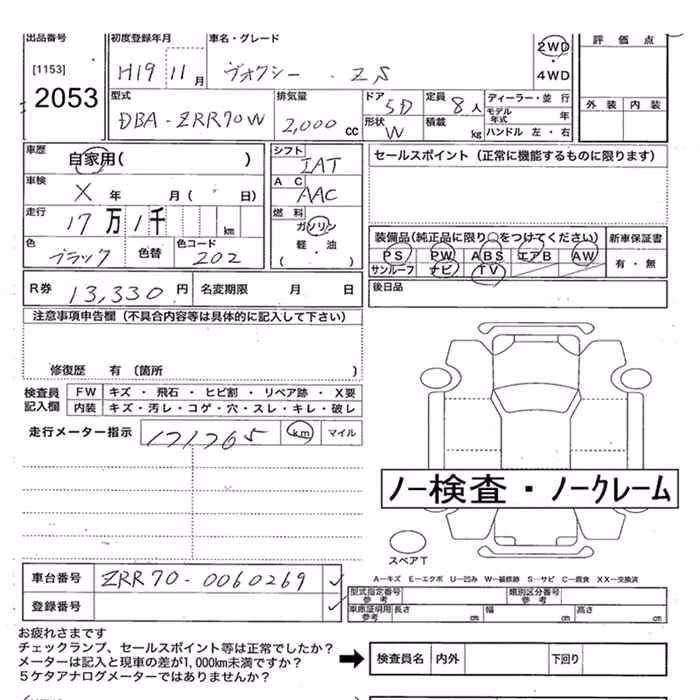 出品番号 初度登録年月 車名・グレード 2WD 評 価 点
[1153] H19 11月 ヴォクシー ・ ZS ・ 4WD
2053 型式 排気量 ドア 5D 定員 8人 ディーラー・並 行 外 装 内 装
DBA-ZRR70W 2,000cc 形状 W 積載 kg モデル年式 年
ハンドル 左・右
車歴 自家用( ) シフト IAT セールスポイント(正常に機能するものに限ります)
車検 X 年 月( 日) A C AAC
走行 17万1千 km 燃 料 ガソリン 装備品(純正品に限り○をつけてください) 新車保証書
色 ブラック 色替 色コード 202 軽・油 PS PW ABS エアB AW 有・無
( ・ ) サンルーフ ナビ TV
R券 13,330円 名変期限 月 日 後日品
注意事項申告欄(不具合内容等は具体的に記入して下さい)
修復歴 有(箇所 )
検査員記入欄 FW キズ・飛石・ヒビ割・リペア跡・X要
内装 キズ・汚レ・コゲ・穴・スレ・キレ・破レ
走行メーター指示 171765 km マイル
ノー検査・ノークレーム
スペアT
車台番号 ZRR70-0060269 A―キズ E―エクボ U―凹み W―補修跡 S―サビ C―腐食 XX―交換済
登録番号 型式指定番号参考 類別区分番号参考
車庫証明用参考 長さ cm 幅 cm 高さ cm
お疲れさまです
チェックランプ、セールスポイント等は正常でしたか?
メーターは記入と現車の差が1,000km未満ですか? 検査員名 内外 下回り
5ケタアナログメーターではありませんか?